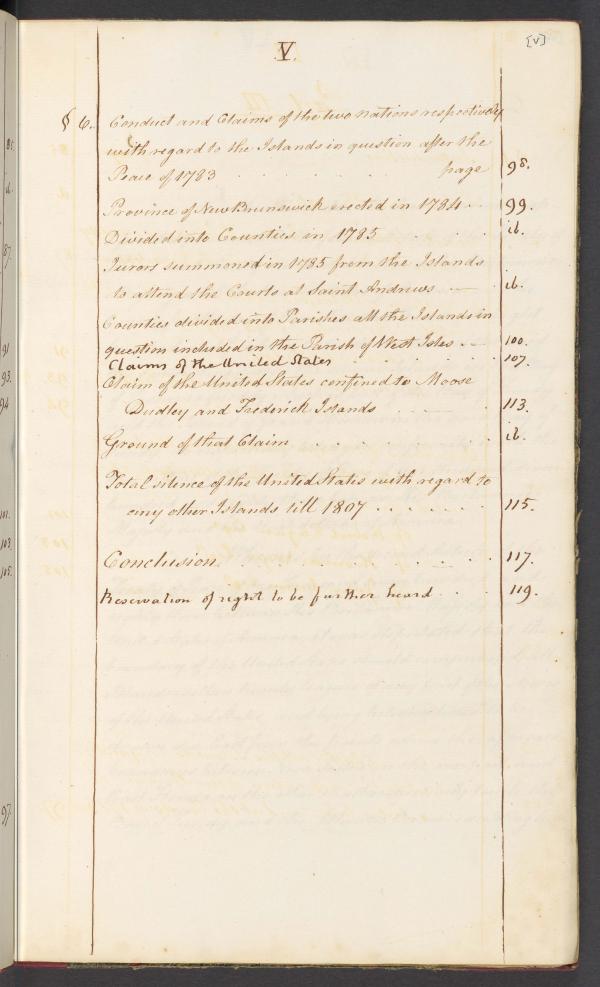 V.
[v]
§ 6. Conduct and Claims of the two nations respectively
with regard to the Islands in question after the
Peace of 1783 . . . . . . page 98.
Province of New Brunswick erected in 1784 . . 99.
Divided into Counties in 1785 . . . . ib.
Jurors summoned in 1785 from the Islands
to attend the Courts at Saint Andrews . . ib.
Counties divided into Parishes all the Islands in
question included in the Parish of West Isles . . 100.
Claims of the United States . . . . . 107.
Claim of the United States confined to Moose
Dudley and Frederick Islands . . . . 113.
Ground of that Claim . . . . . . . ib.
Total silence of the United States with regard to
any other Islands till 1807 . . . . . . . 115.
Conclusion . . . . . . . . 117.
Reservation of right to be further heard . . . 119.
87.
91
93.
94
101.
103.
105.
97.